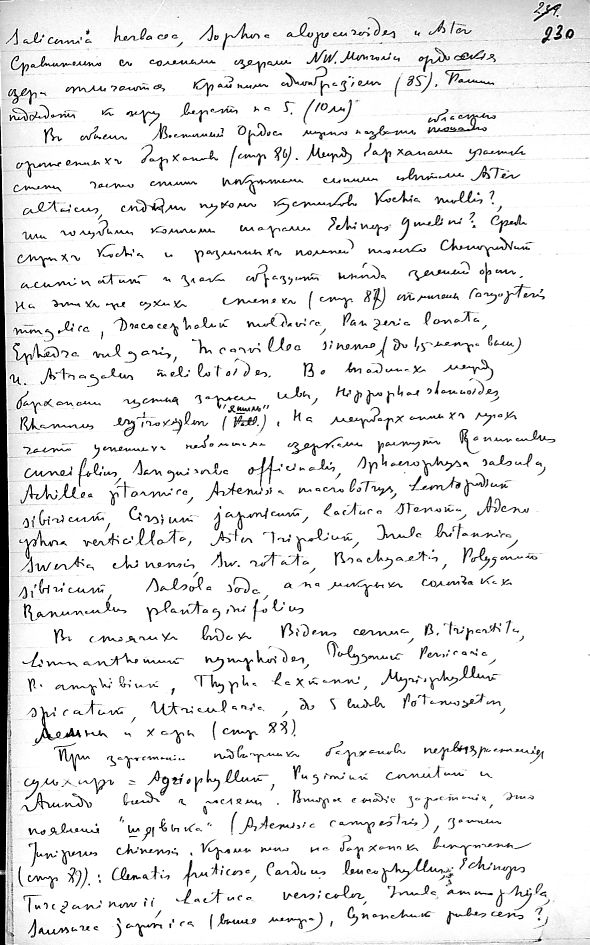 239.
230
Salicornia herbacea, Sophora alopecuroides и Aster
Сравнительно съ солеными озерами NW. Монголіи ордосскія
озера отличаются крайнимъ однообразіемъ (85).
подходятъ къ озеру верстъ на 5. (10 ли)
Въ общемъ Восточный Ордосъ можно назвать областью
барханов (стр 86). Между барханами участки
степи часто цвѣтами Aster
altaicus, пухомъ кустиковъ Kochia mollis?,
или голубыми шарами Echinops Gmelini? Среди
сухихъ Kochia и различныхъ полыней только Chenopodium
acuminatum и злаки образуютъ иногда зеленый фон.
На этихъ же сухихъ степяхъ (стр 87) отмѣчены Caryopteris
mongolica, Dracocephalum moldavica, Panzeria lanata,
Ephedra vulgaris, Incarvillea sinensis (до 1,5 метра выш)
и Astragalus melilotoides. Во впадинахъ между
барханами густыя заросли ивы, Hippophae rhamnoides
Rhamnus erythroxylon (Pall.). На межбарханныхъ лугах
часто усеянныхъ небольшими озерками растутъ Ranunculus
cuneifolius, Sanguisorba officinalis, Sphaerophysa salsula,
Achillea ptarmica, Artemisia macrobotrys, Leontopodium
sibiricum, Cirsium japonicum, Lactuca Adeno
phora verticillata, Aster Tripolium, Inula britannica,
Swertia chinensis, Sw. rotata, Brachyactis, Polygonum
sibiricum, Salsola soda, а на мокрыхъ солончакахъ
Ranunculus plantaginifolius
Въ стоячихъ водахъ Bidens cernua, B. tripartita,
Limnanthemum nymphoides, Polygonum Persicaria,
P. amphibium, Thypha Laxmanni, Myriophyllum
spicatum, Utricularia, до 5 видовъ Potamogeton,
и хары (стр 88)
При заростаніи подвижныхъ бархановъ
сульхиръ = Agriophyllum, Pugionium cornutum и
Arundo Вторая стадія заростанія, это
появленіе "шавыка" (Artemisia campestris), затѣмъ
Juniperus chinensis. Кромѣ того на барханахъ встрѣчены
(стр 89): Clematis fruticosa, Carduus leucophyllus, Echinops
Turczaninowii, Lactuca versicolor, Inula ammophila,
Saussurea japonica (выше метра), Cynanchum pubescens?,